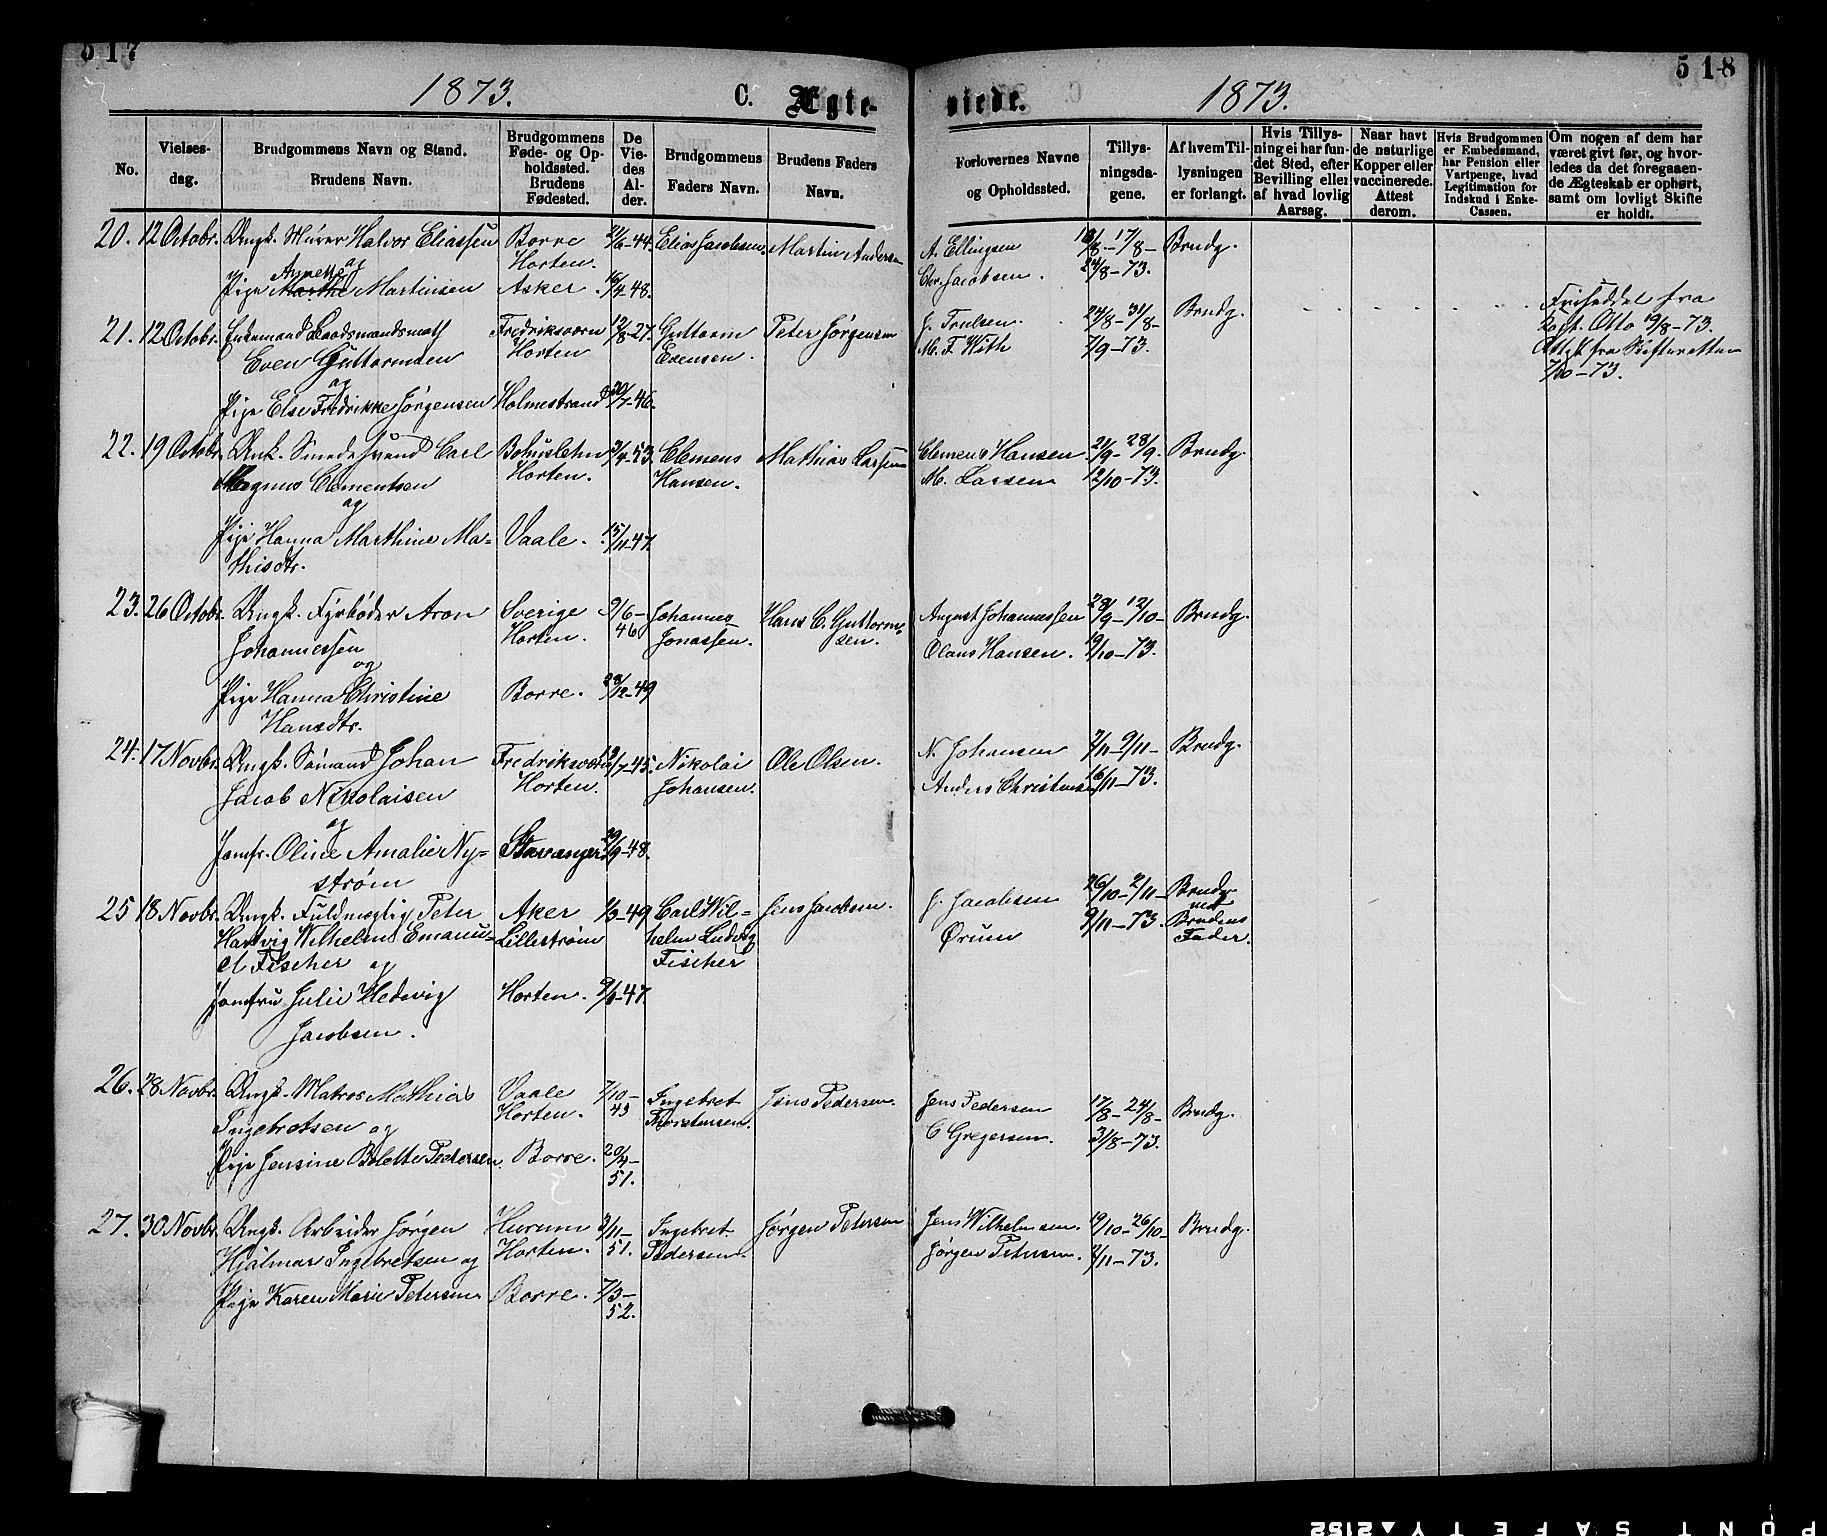 517
518
1873.
C. Ægte-
viede.
1873.
No.
Vielses-
dag.
Brudgommens Navn og Stand.
Brudens Navn.
Brudgommens
Føde- og Op-
holdssted.
Brudens
Fødested.
De
Vie-
des
Al-
der.
Brudgommens
Faders Navn.
Brudens Faders
Navn.
Forlovernes Navne
og Opholdssted.
Tillys-
ningsda-
gene.
Af hvem Til-
lysningen
er forlangt.
Hvis Tillys-
ning ei har fun-
det Sted, efter
Bevilling eller
af hvad lovlig
Aarsag.
Naar havt
de naturlige
Kopper eller
vaccinerede.
Attest
derom.
Hvis Brudgommen
er Embedsmand,
har Pension eller
Vartpenge, hvad
Legitimation for
Indskud i Enke-
Cassen.
Om nogen af dem har
været givt før, og hvor-
ledes da det foregaaen-
de Ægteskab er ophørt,
samt om lovligt Skifte
er holdt.
20. 12 Octobr. Ungk. Murer Halvor Eliassen Borre 21/6-44. Elias Jacobsen. Martin Andersen A. Ellingsen 17/8- Brudg.
og Horten. Chr. Jacobsen. 24/8-73.
Annette
Pige Marthe Martinsen Asker. 16/4-48.
21. 12 Octobr. Enkemand Baadsmandsmath Fredriksværn 12/8-27. Guttorm Peter Jørgensen J. Trulsen. 24/8-31/8- Brudg. Friseddel fra
Even Guttormsen Horten Evensen. M. F. With 7/9-73. Kapt. Otto 19/8-73.
og Attest fra Skifteretten
7/10-73.
Pige Else Fredrikke Jørgensen Holmestrand 30/7-46.
22. 19 Octobr. Unk. Smedesvend Carl Bohuslehn 3/4-53. Clemens Mathias Larsen Clemens Hansen. 21/9-28/9. Brudg.
Magnus Clementsen Horten. Hansen. M. Larsen 12/10-73.
og
Pige Hanna Marthine Ma- Vaale. 15/11-47.
thisdtr.
23. 26 Octobr. Ungk. Fyrbøder Aron Sverige 9/6- Johannes Hans C. Guttorm- August Johannessen 28/9-12/10- Brudg.
Johannessen Horten. 46 Jonassen. sen. Olaus Hansen. 19/10-73.
og
Pige Hanna Christine Borre. 28/12-49
Hansdtr.
24. 17 Novbr. Ungk. Sømand Johan Fredriksværn /7-45. Nikolai Ole Olsen. N. Johansen 2/11-9/11- Brudg.
Jacob Nikolaisen Horten. Johansen. Anders Christensen 16/11-73.
og
Jomfr. Oline Amalie Ny- Stavanger 29/9-48.
strøm
25 18 Novbr. Ungk. Fuldmægtig Peter Aker /3-49 Carl Wil- Jens Jacobsen. J. Jacobsen 26/10-2/11- Brudg.
Hartvig Wilhelm Emanu- Lillestrøm helm Ludvig Ørum 9/11-73. med
el Fischer og Fischer Brudens
Fader.
Jomfru Julie Hedevig Horten. -47.
Jacobsen.
26. 28 Novbr. Ungk. Matros Mathias Vaale 7/10- Ingebret Jens Pedersen. Jens Pedersen 17/8-24/8- Brudg.
Ingebretsen og Horten. 43 Thorstensen. C Gregersen. 31/8-73.
Pige Jensine Bolette Pedersen. Borre. 20/4-
51.
27. 30 Novbr. Ungk. Arbeider Jørgen Hurum 3/11- Ingebret Jørgen Petersen Jens Wilhelmsen. 19/10-26/10- Brudg.
Hjalmar Ingebretsen og Horten. 51. Pedersen. Jørgen Petersen. 2/11-73.
Pige Karen Marie Petersen Borre. 7/3-
52.
PONT SAFETY 2152